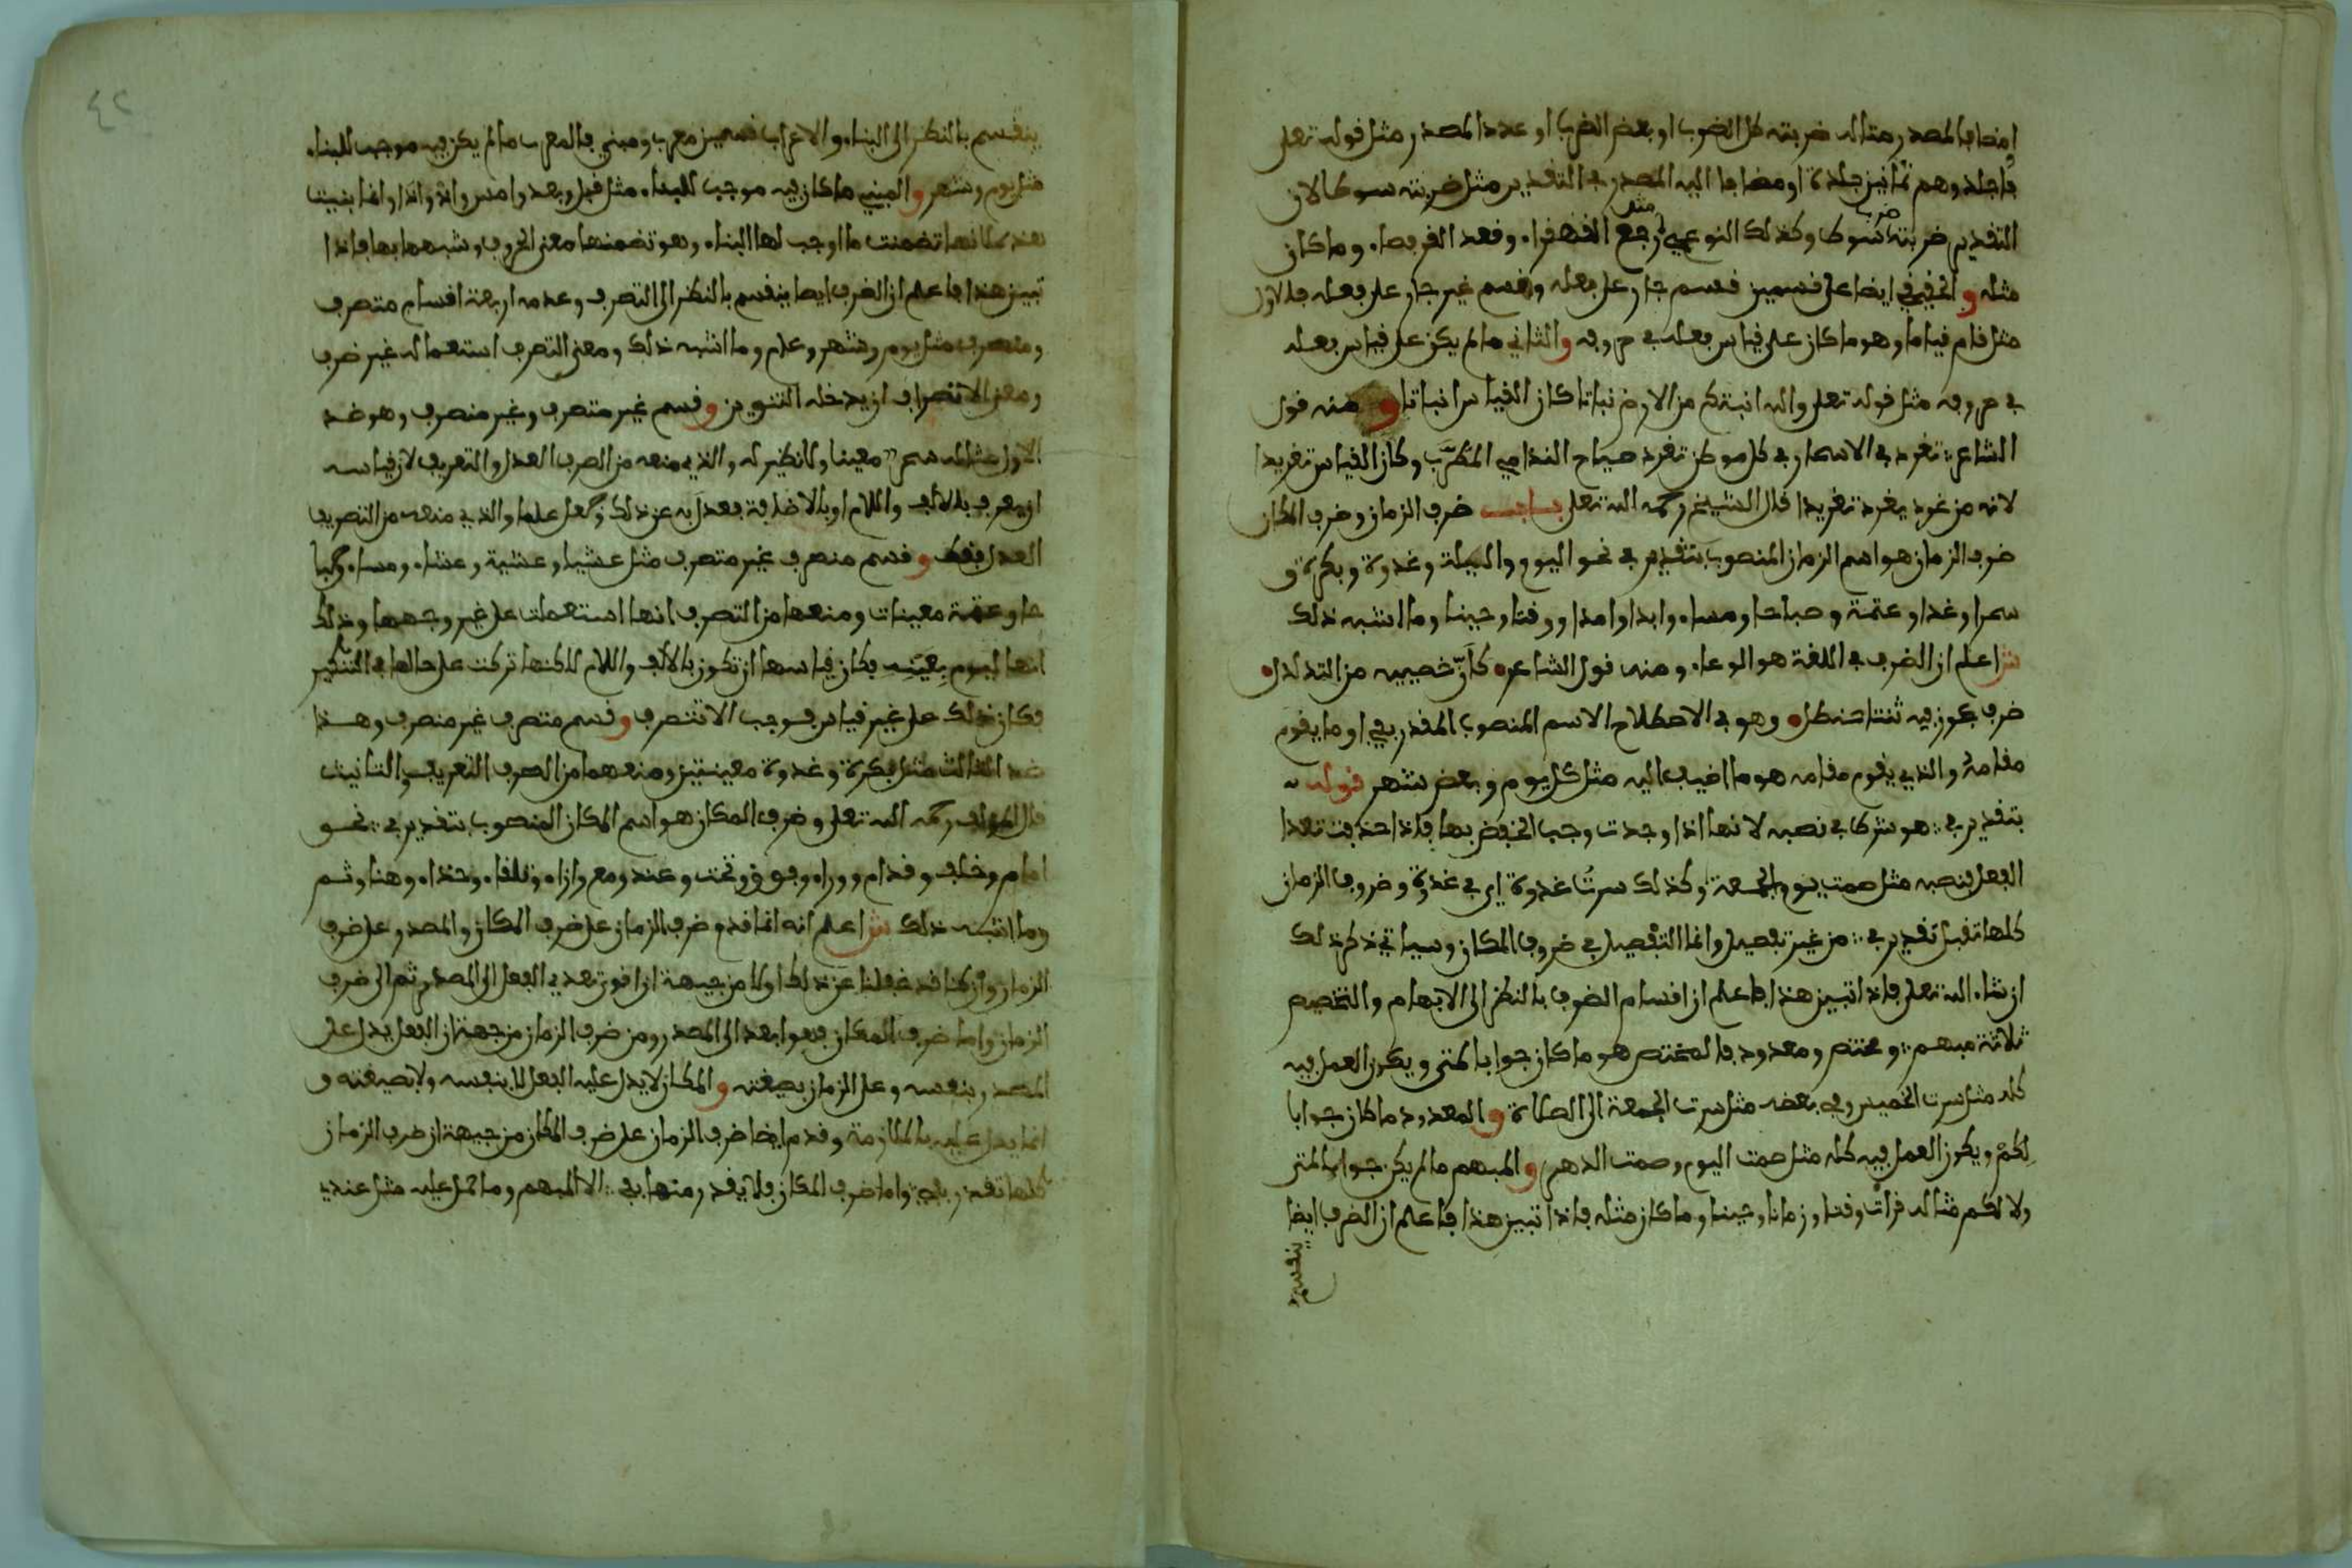 او مضافا للمصدر مثاله ضربته كل الضرب او بعض الضرب او عدد المصدر مثل قوله تعلى
فاجلدوهم ثمانين جلدة او مضافا اليه المصدر في التقدير مثل ضربته سوطا لان
التقدير ضربته ضرب سوط وكذلك النوعي مثل رجع القهقرا وقعد القرفصاء وما كان
مثله والحقيقي ايضا على قسمين قسم جار على فعله وقسم غير جار على فعله فالاول
مثل قام قياما وهو ما كان على قياس فعله في حروفه والثاني ما لم يكن على قياس فعله
في حروفه مثل قوله تعلى والله انبتكم من الارض نباتا كان القياس انباتا ومنه قول
الشاعر تغرد في الاسحار في كل موطن تغرد صياح الندامى المطرب وكان القياس تغريدا
لانه من غرد يغرد تغريدا قال الشيخ رحمه الله تعلى باب ظرف الزمان وظرف المكان
ظرف الزمان هو اسم الزمان المنصوب بتقدير في نحو اليوم والليلة وغدوة وبكرة و
سحرا وغدا وعتمة وصباحا ومساء وابدا وامدا ووقتا وحينا وما اشبه ذلك
ش اعلم ان الظرف في اللغة هو الوعاء ومنه قول الشاعر كأن خصييه من التدلدل
ظرف عجوز فيه ثنتا حنظل وهو في الاصطلاح الاسم المنصوب المقدر بفي او ما يقوم
مقامه والذي يقوم مقامه هو ما اضيف اليه مثل كل يوم وبعض شهر قوله
بتقدير في هو شرط في نصبه لانها اذا وجدت وجب الخفض بها فاذا حذفت تعدا
الفعل فنصبه مثل صمت يوم الجمعة وكذلك سرت غدوة اي في غدوة وظروف الزمان
كلها تقبل تقدير في من غير تفصيل وانما التفصيل في ظروف المكان وسياتي ذكر ذلك
ان شاء الله تعلى فاذا تبين هذا فاعلم ان اقسام الظروف بالنظر الى الابهام والتخصيص
ثلاثة مبهم ومختص ومعدود فالمختص هو ما كان جوابا لمتى ويكون العمل فيه
كله مثل سرت الخميس وفي بعضه مثل سرت الجمعة الى الصلاة والمعدود ما كان جوابا
لكم ويكون العمل فيه كله مثل صمت اليوم وصمت الدهر والمبهم ما لم يكن جوابا لمتى
ولا لكم مثاله قرأت وقتا وزمانا وحينا وما كان مثله فاذا تبين هذا فاعلم ان الظرف ايضا
ينقسم
٤٢
ينقسم بالنظر الى البناء والاعراب قسمين معرب ومبني فالمعرب ما لم يكن فيه موجب للبناء
مثل يوم وشهر والمبني ما كان فيه موجب للبناء مثل قبل وبعد وامس واذ واذا وانما بنيت
هذه لانها تضمنت ما اوجب لها البناء وهو تضمنها معنى الحروف وشبهها بها فاذا
تبين هذا فاعلم ان الظرف ايضا ينقسم بالنظر الى التصرف وعدمه اربعة اقسام متصرف
ومنصرف مثل يوم وشهر وعام وما اشبه ذلك ومعنى التصرف استعماله غير ظرف
ومعنى الانصراف ان يدخله التنوين وقسم غير متصرف وغير منصرف وهو ضد
الاول مثاله سحر معينا ولا نظير له والذي منعه من الصرف العدل والتعريف لان قياسه
ان يعرف بالالف واللام او بالاضافة فعدل به عن ذلك وجعل علما والذي منعه من التصريف
العدل فقط وقسم منصرف غير متصرف مثل عشيا وعشية وعشاء ومساء وصبا
حا وعتمة معينات ومنعها من التصرف انها استعملت على غير وجهها وذلك
انها ليوم بعينه فكان قياسها ان تكون بالالف واللام لاكنها تركت على حالها في التنكير
فكان ذلك على غير قياس فوجب الا تتصرف وقسم متصرف غير منصرف وهذا
ضد الثالث مثل بكرة وغدوة معينتين ومنعهما من الصرف التعريف والتانيث
قال المولف رحمه الله تعلى وظرف المكان هو اسم المكان المنصوب بتقدير في نحو
امام وخلف وقدام ووراء وفوق وتحت وعند ومع وازاء وتلقاء وحذاء وهنا وثم
وما اشبه ذلك ش اعلم انه انما قدم ظرف الزمان على ظرف المكان والمصدر على ظرف
الزمان وان كنا قد غفلنا عن ذلك اولا من جهة ان اقوى تعدي الفعل الى المصدر ثم الى ظرف
الزمان واما ظرف المكان فهو ابعد الى المصدر ومن ظرف الزمان من جهة ان الفعل يدل على
المصدر بنفسه وعلى الزمان بصيغته والمكان لا يدل عليه الفعل لا بنفسه ولا بصيغته و
انما يدل عليه بالملازمة وقدم ايضا ظرف الزمان على ظرف المكان من جهة ان ظرف الزمان
كلها تقدر بفي واما ظرف المكان فلا يقدر منها بفي الا المبهم وما حمل عليه مثل عندي